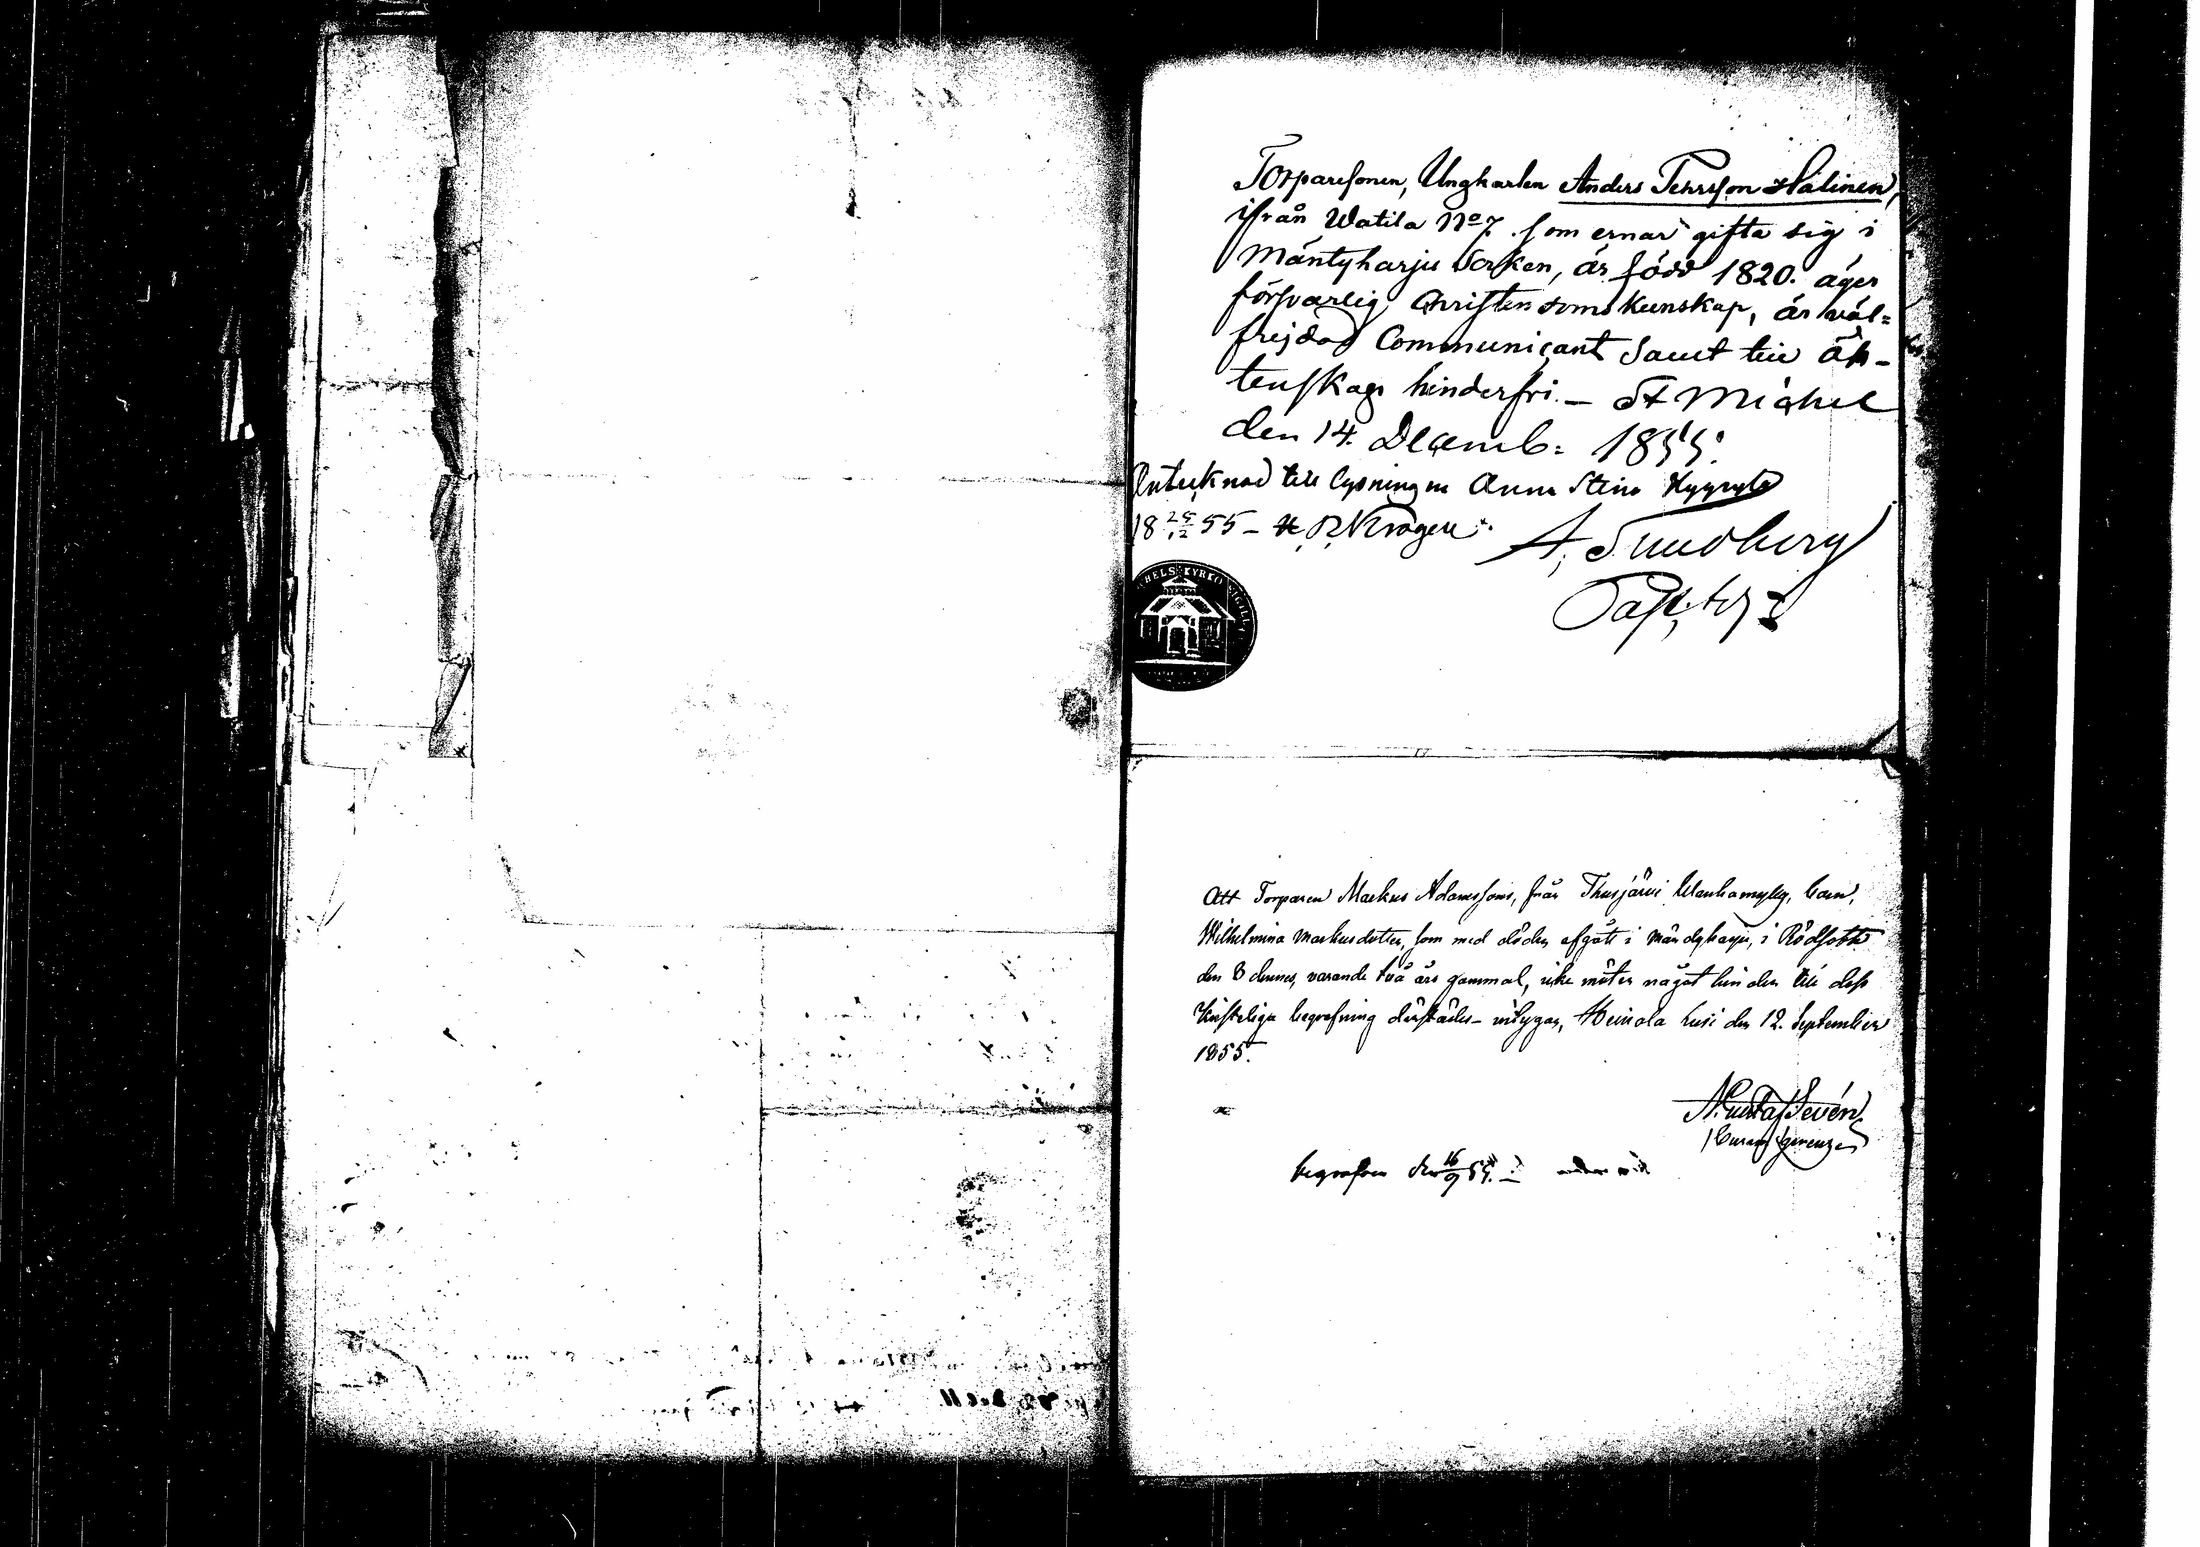 Torparesonen, Ungkarlen Anders Pehrsson Hälinen,
ifrån Watila No 7. som ernar gifta sig i
Mäntyharju Socken, är född 1820. äger
försvarlig Christendomskunskap, är väl=
frejdad Communicant samt till äk-
tenskap hinderfri. — St Michel
den 14. Decemb: 1855.
Antecknad till lysning m Anna Stina Hyyrylä
18 25/12 55 —
A. Sundberg
Past:
HELS KYRKO
Att Torparen Markus Adamssons, från Thusjärvi barn,
Wilhelmina Markusdotter, som med döden afgått i Mändyharju, i Rödsoth
den 8 dennes, varande två års gammal, icke möter något hinder till dess
kristeliga begrafning därstädes - intygar, Heinola Lusi den 12. September
1855.
begrafven den 16/9 55.